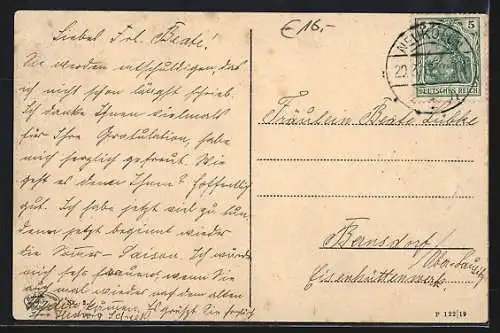 Liebes Frl. Beate!
Sie werden entschuldigen, daß
ich nicht schon längst schrieb.
Ich danke Ihnen vielmals
für Ihre Gratulation, habe
mich herzlich gefreut. Wie
geht es denn Ihnen? Hoffentlich
gut. Ich habe jetzt viel zu tun,
denn jetzt beginnt wieder
die Saison. Ich würde
mich sehr freuen, wenn Sie
auch mal wieder nach dem alten
kommen. Es grüßt Sie
Hedwig
€16,-
NEUKÖLLN
5
DEUTSCHES REICH
Fräulein Beate Lübke
Bansdorf
Eisenhüttenwerk
P 122/19